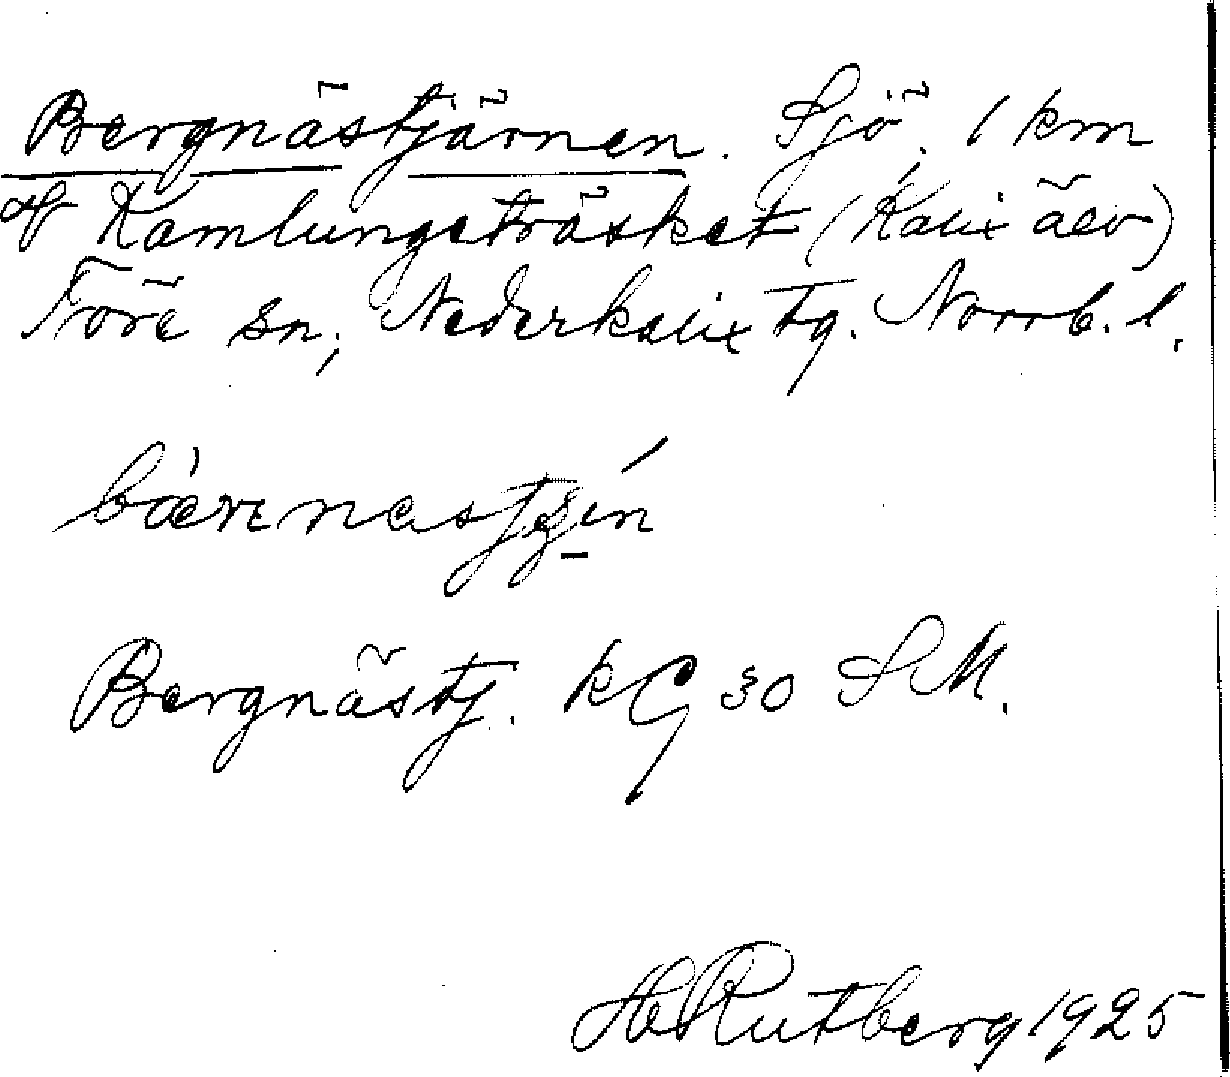 Bergnästjärnen. Sjö, 1 km
af Kamlungeträsket (Kalix älv)
Töre sn, Nederkalix tg. Norrb. l.
bærɛnastʂin
Bergnästj. kG 30 SM.
H Rutberg 1925